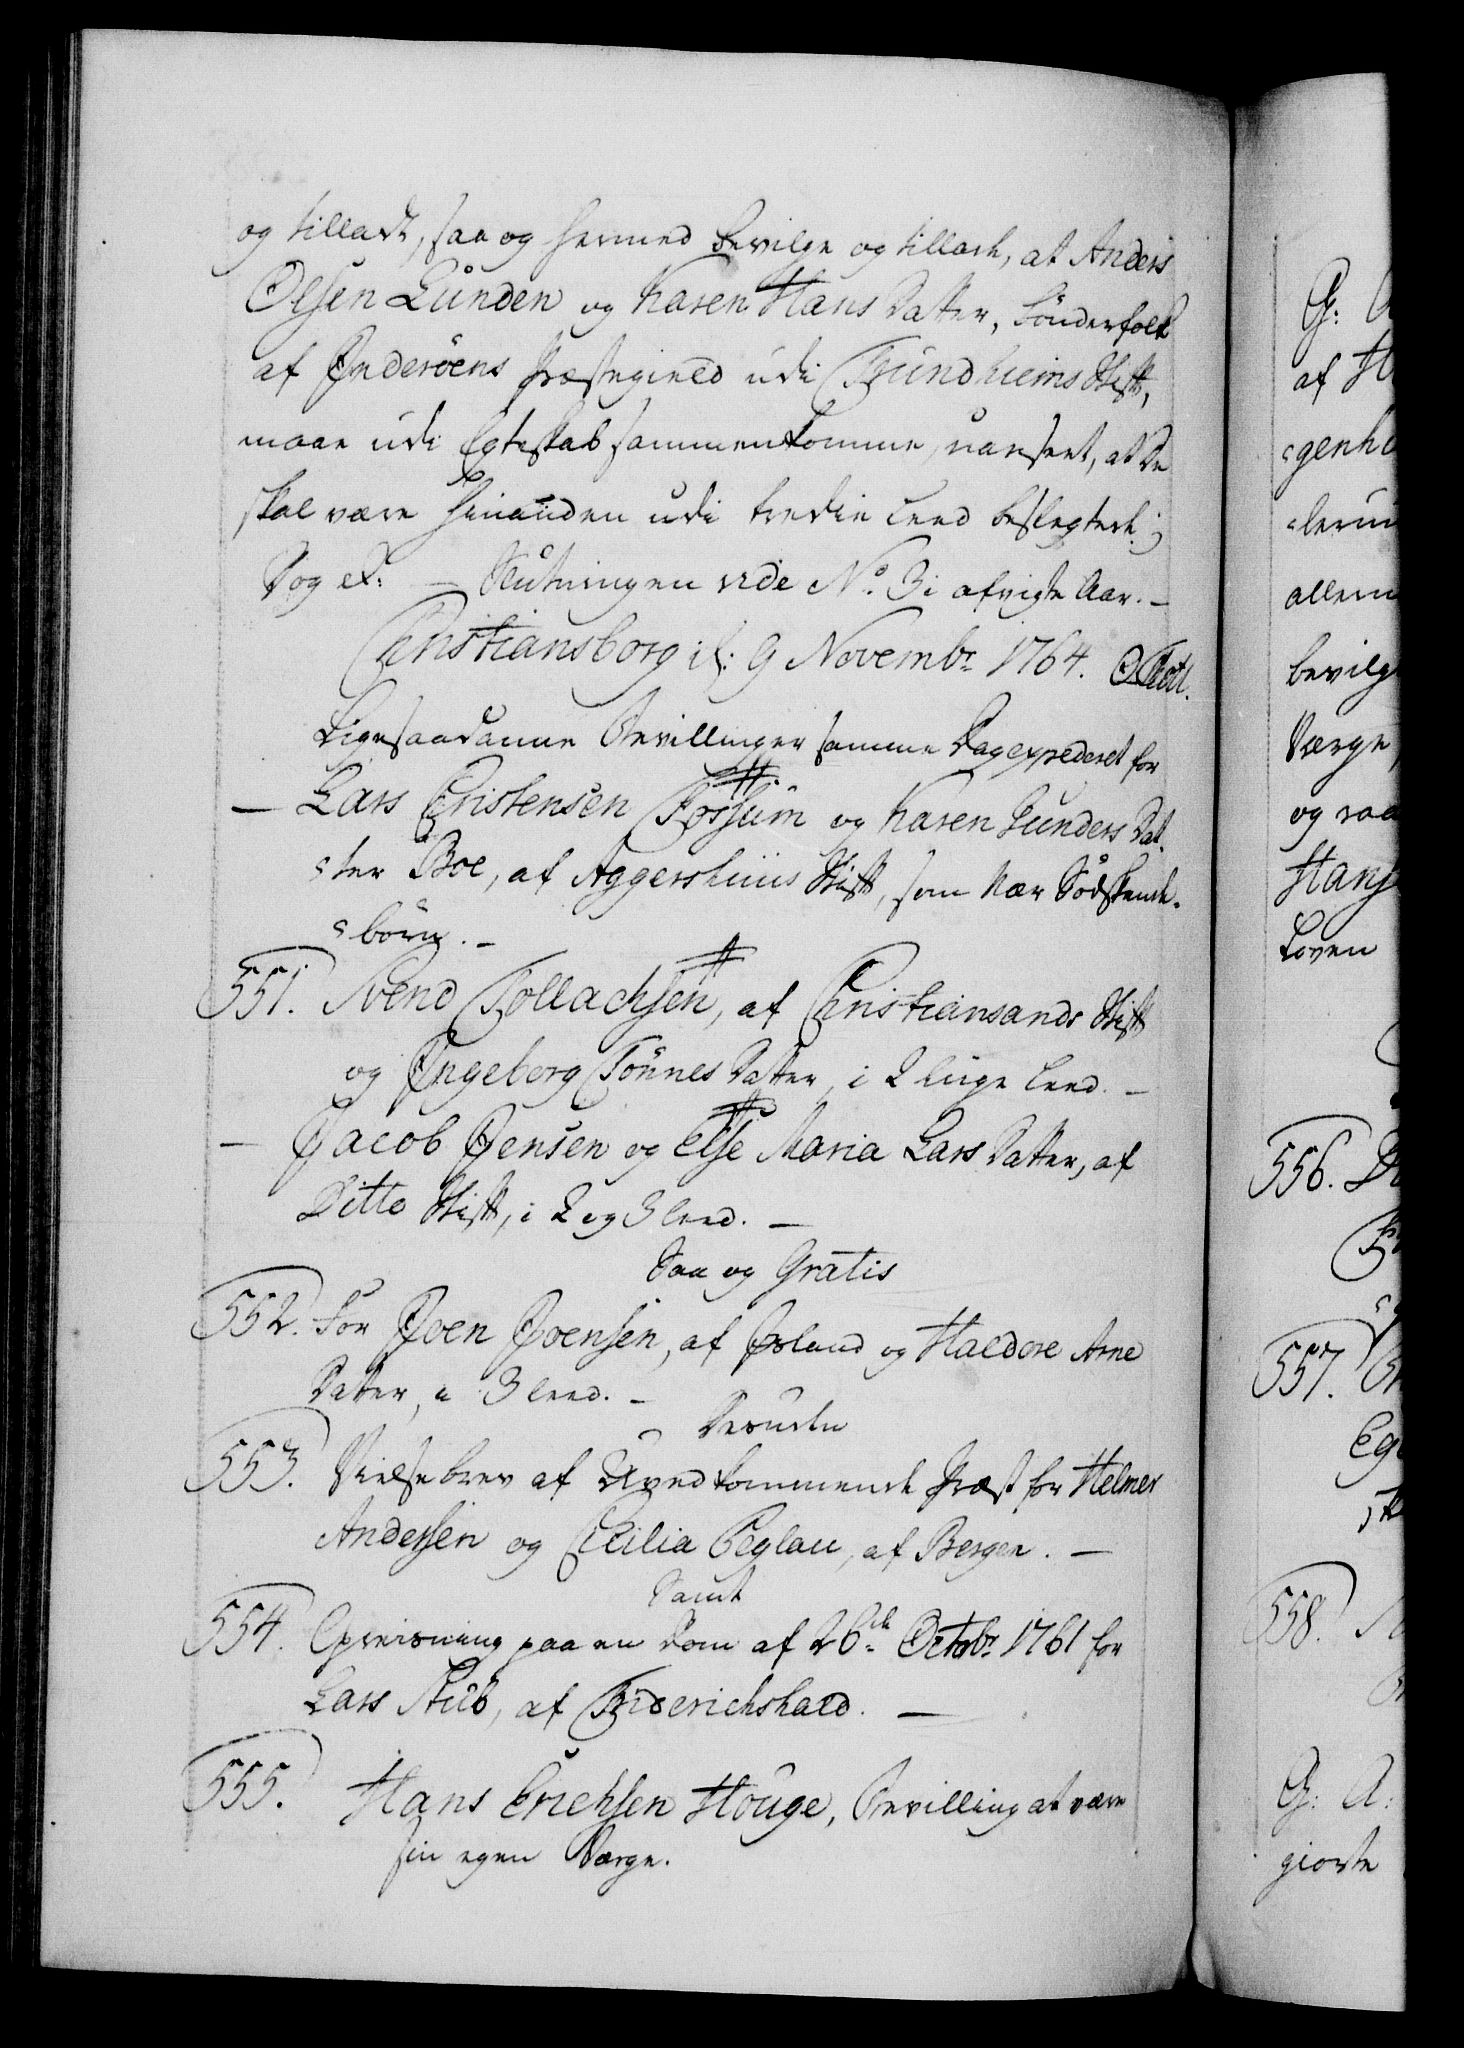 og tilladt, saa og hermed bevilge og tillade, at Anders
Olsen Lunden og Karen Hans Datter, Bönderfolk
af Inderöens Præstegield udi Trundhiems Stift,
maae udi Egteskab sammenkomme, uanseet, at de
skal være hinanden udi tredie Leed beslegtede;
Dog etc: — Slutningen vide No. 3 i afvigte Aar. —
Christiansborg d: 9 Novembr 1764.
Ligesaadanne Bevillinger samme Dag expederet for
— Lars Christensen Fossum og Karen Gunders Dat-
ter Boe, af Aggershuus Stift, som er Södskende-
börn. —
551. Svend Tollachsen, af Christiansands Stift
og Ingeborg Tönnes Datter, i 2 liige Leed. —
— Jacob Jensen og Else Maria Lars Datter, af
Ditto Stift, i 2 og 3 Leed. —
Saa og Gratis
552. For Joen Joensen, af Island og Haldore Arne
Datter, i 3 Leed. —
Desuden
553. Vielsebrev af Uvedkommende Præst for Helmer
Andersen og Cicilia Peglau, af Bergen. —
Samt
554. Opreisning paa en Dom af 26de Octobr 1761 for
Lars Stub, af Friderichshald. —
555. Hans Erichsen Houge, Bevilling at være
sin egen Værge.
G: A
af H
genh
allern
bevilg
Værge
og raa
Hans
Loven
556.
557.
Eg
558.
G: A:
giorte